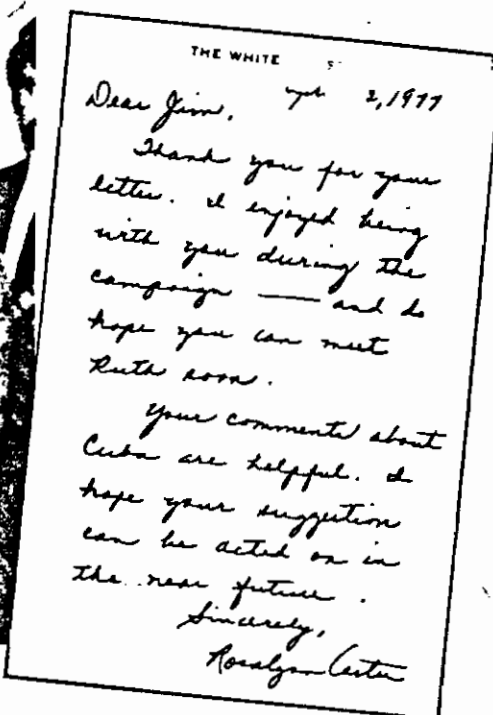 THE WHITE
2, 1977
Dear Jim,
Thank you for your
letter. I enjoyed being
with you during the
campaign — and do
hope you can meet
Ruth soon.
Your comments about
Cuba are helpful. I
hope your suggestion
can be acted on in
the near future.
Sincerely,
Rosalynn Carter